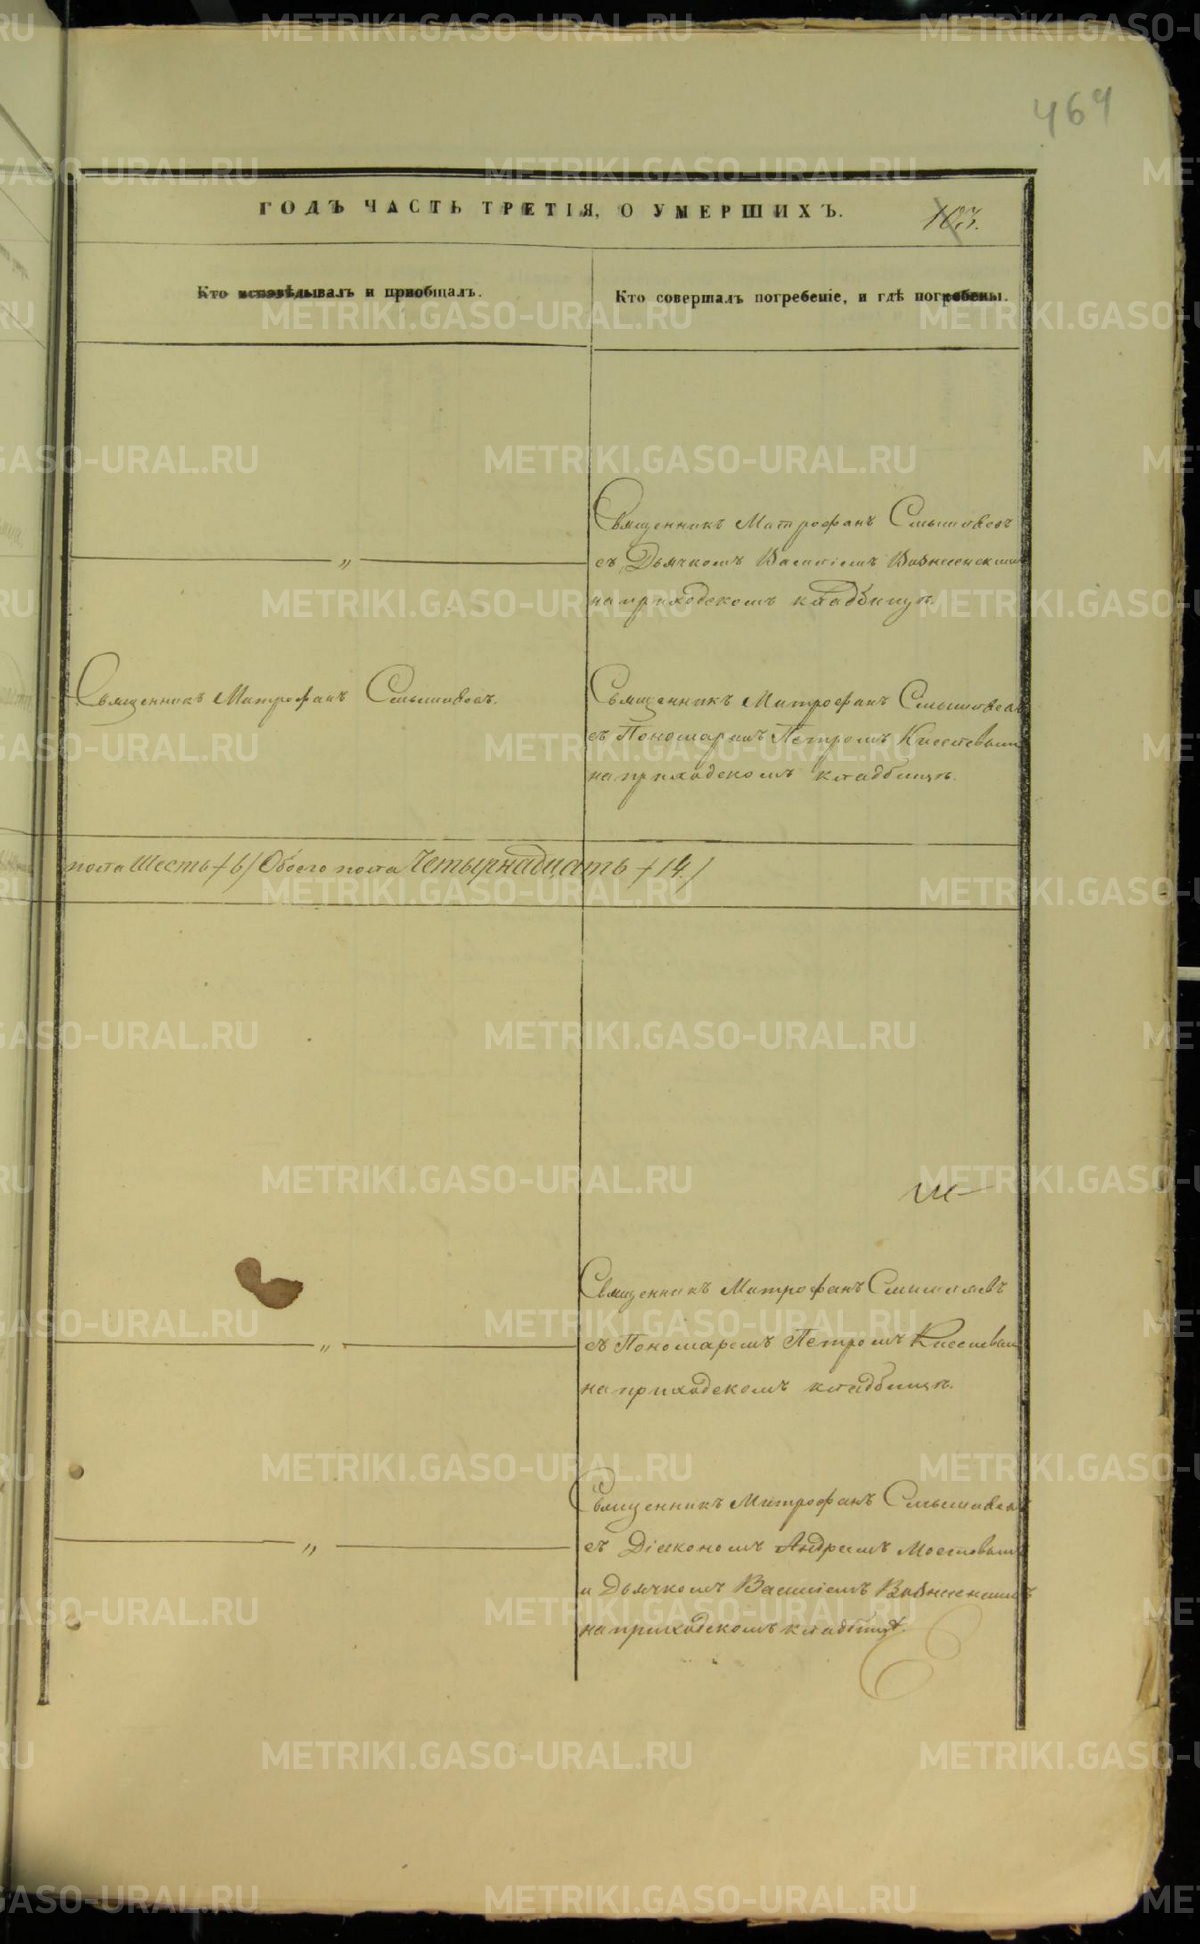 464
ГОДЪ ЧАСТЬ ТРЕТІЯ, О УМЕРШИХЪ.
103.
Кто исповѣдывалъ и пріобщалъ.
Кто совершалъ погребеніе, и гдѣ погребены.
Священникъ Митрофанъ
съ Дьячкомъ Василіемъ Вознесенскимъ
на приходскомъ кладбищѣ.
Священникъ Митрофанъ
Священникъ Митрофанъ
съ Пономаремъ Петромъ
на приходскомъ кладбищѣ.
пола Шесть /6/ Обоего пола Четырнадцать /14/
Священникъ Митрофанъ
съ Пономаремъ Петромъ
на приходскомъ кладбищѣ.
Священникъ Митрофанъ
съ Діакономъ Андреемъ
и Дьячкомъ Василіемъ Вознесенскимъ
на приходскомъ кладбищѣ.
METRIKI.GASO-URAL.RU